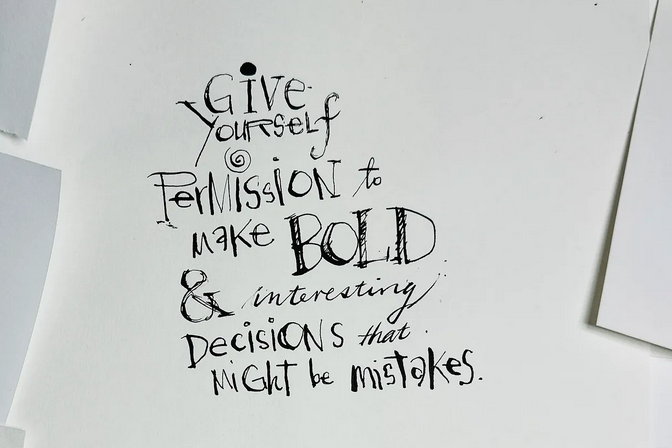 GIVE
YOURSELf
PerMISsION to
make BOLD
& interesting
DecisIONs that
MiGht be mistakes.